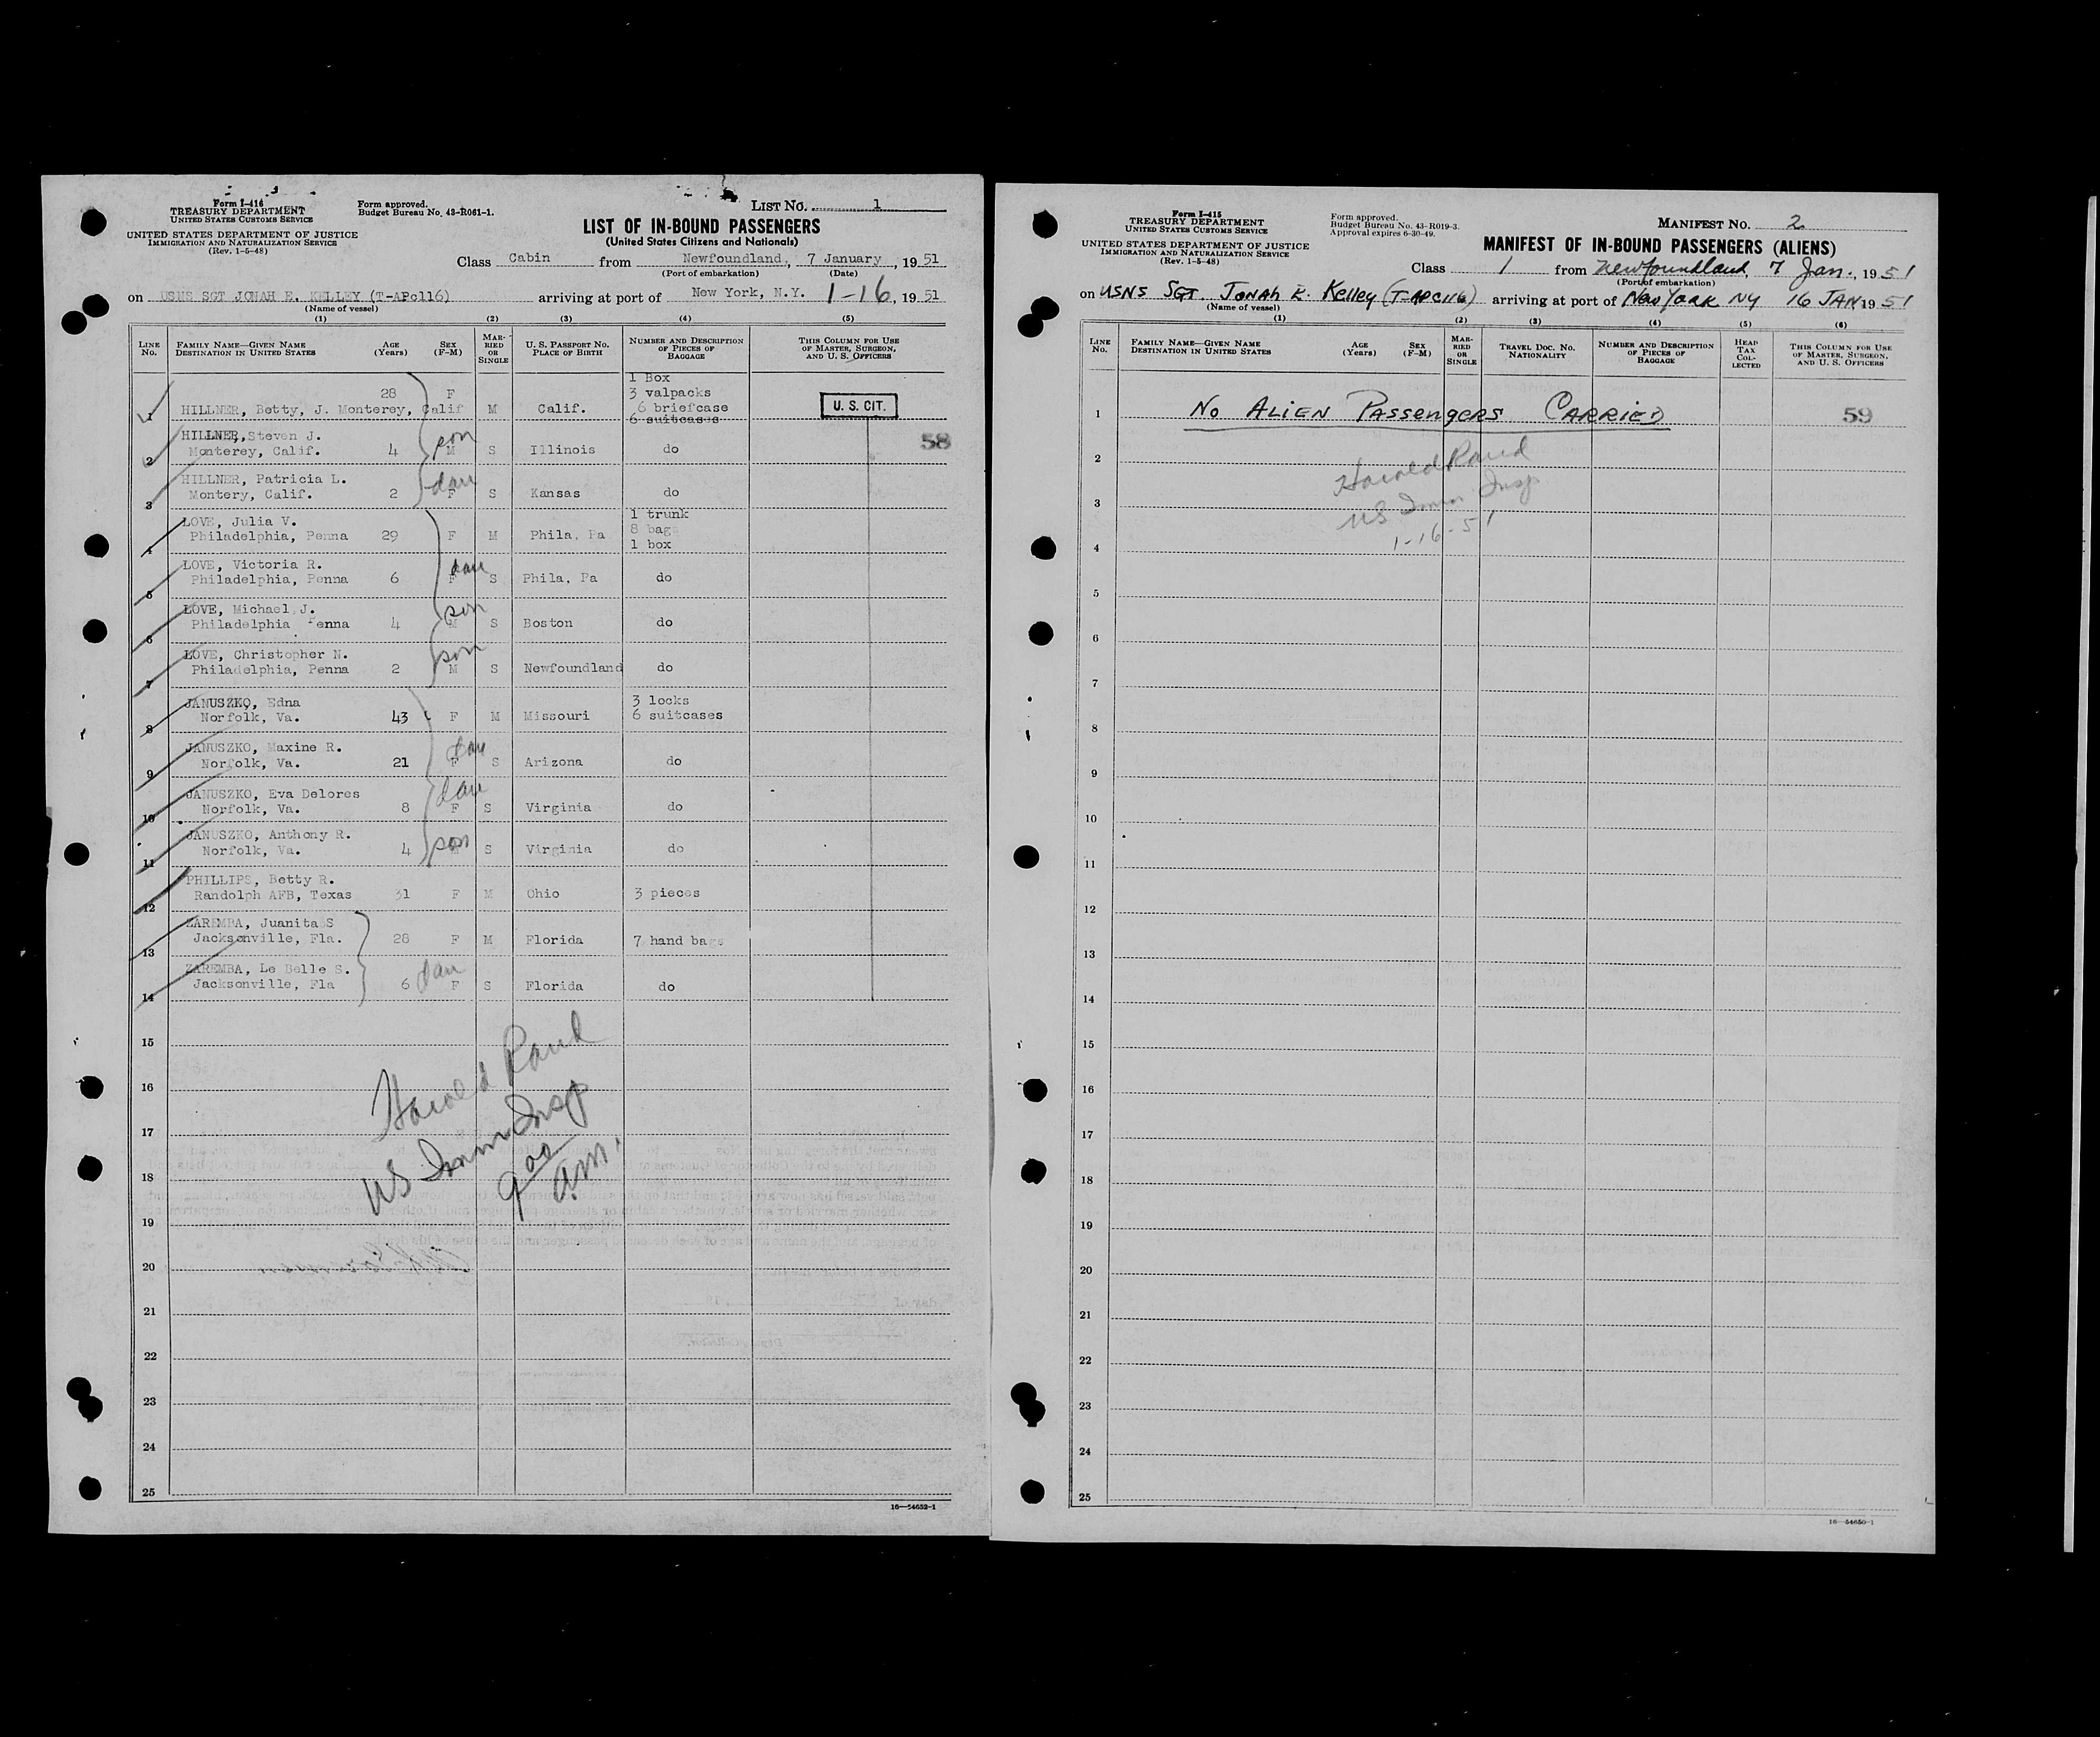 Form I-416
TREASURY DEPARTMENT
UNITED STATES CUSTOMS SERVICE
UNITED STATES DEPARTMENT OF JUSTICE
IMMIGRATION AND NATURALIZATION SERVICE
(Rev. 1-5-48)
Form approved.
Budget Bureau No. 43-R061-1.
LIST NO. 1
LIST OF IN-BOUND PASSENGERS
(United States Citizens and Nationals)
Class Cabin from Newfoundland, 7 January, 19 51
(Port of embarkation) (Date)
on USNS SGT JONAH E. KELLEY (T-APc116) arriving at port of New York, N.Y. 1-16, 19 51
(Name of vessel)
(1) (2) (3) (4) (5)
LINE NO. FAMILY NAME—GIVEN NAME DESTINATION IN UNITED STATES AGE (Years) SEX (F-M) MARRIED OR SINGLE U. S. PASSPORT NO. PLACE OF BIRTH NUMBER AND DESCRIPTION OF PIECES OF BAGGAGE THIS COLUMN FOR USE OF MASTER, SURGEON, AND U. S. OFFICERS
1 Box
28 F 3 valpacks
1 HILLNER, Betty, J. Monterey, Calif M Calif. 6 briefcase U. S. CIT.
6 suitcases
HILLNER, Steven J. son 58
2 Monterey, Calif. 4 M S Illinois do
HILLNER, Patricia L. dau
3 Montery, Calif. 2 F S Kansas do
LOVE, Julia V. 1 trunk
4 Philadelphia, Penna 29 F M Phila, Pa 8 bags
1 box
LOVE, Victoria R. dau
5 Philadelphia, Penna 6 F S Phila, Pa do
LOVE, Michael J. son
6 Philadelphia Penna 4 M S Boston do
LOVE, Christopher N. son
7 Philadelphia, Penna 2 M S Newfoundland do
JANUSZKO, Edna 3 locks
8 Norfolk, Va. 43 F M Missouri 6 suitcases
JANUSZKO, Maxine R. dau
9 Norfolk, Va. 21 F S Arizona do
JANUSZKO, Eva Delores dau
10 Norfolk, Va. 8 F S Virginia do
JANUSZKO, Anthony R. son
11 Norfolk, Va. 4 S Virginia do
PHILLIPS, Betty R.
12 Randolph AFB, Texas 31 F M Ohio 3 pieces
ZAREMBA, Juanita S
13 Jacksonville, Fla. 28 F M Florida 7 hand bags
ZAREMBA, Le Belle S. dau
14 Jacksonville, Fla 6 F S Florida do
15
16
17
18
19
20
21
22
23
24
25
Harold Rand
US Imm Insp
9 00 am.
16—54652-1
Form I-415
TREASURY DEPARTMENT
UNITED STATES CUSTOMS SERVICE
UNITED STATES DEPARTMENT OF JUSTICE
IMMIGRATION AND NATURALIZATION SERVICE
(Rev. 1-5-48)
Form approved.
Budget Bureau No. 43-R019-3.
Approval expires 6-30-49.
MANIFEST NO. 2
MANIFEST OF IN-BOUND PASSENGERS (ALIENS)
Class 1 from Newfoundland, 7 Jan., 19 51
(Port of embarkation)
on USNS SGT. JONAH E. Kelley (T-APC116) arriving at port of New York NY 16 JAN, 19 51
(Name of vessel)
(1) (2) (3) (4) (5) (6)
LINE NO. FAMILY NAME—GIVEN NAME DESTINATION IN UNITED STATES AGE (Years) SEX (F-M) MARRIED OR SINGLE TRAVEL DOC. NO. NATIONALITY NUMBER AND DESCRIPTION OF PIECES OF BAGGAGE HEAD TAX COLLECTED THIS COLUMN FOR USE OF MASTER, SURGEON, AND U. S. OFFICERS
1 NO ALIEN PASSENGERS CARRIED 59
2 Harold Rand
3 US Imm Insp
1-16-51
4
5
6
7
8
9
10
11
12
13
14
15
16
17
18
19
20
21
22
23
24
25
16—54650-1